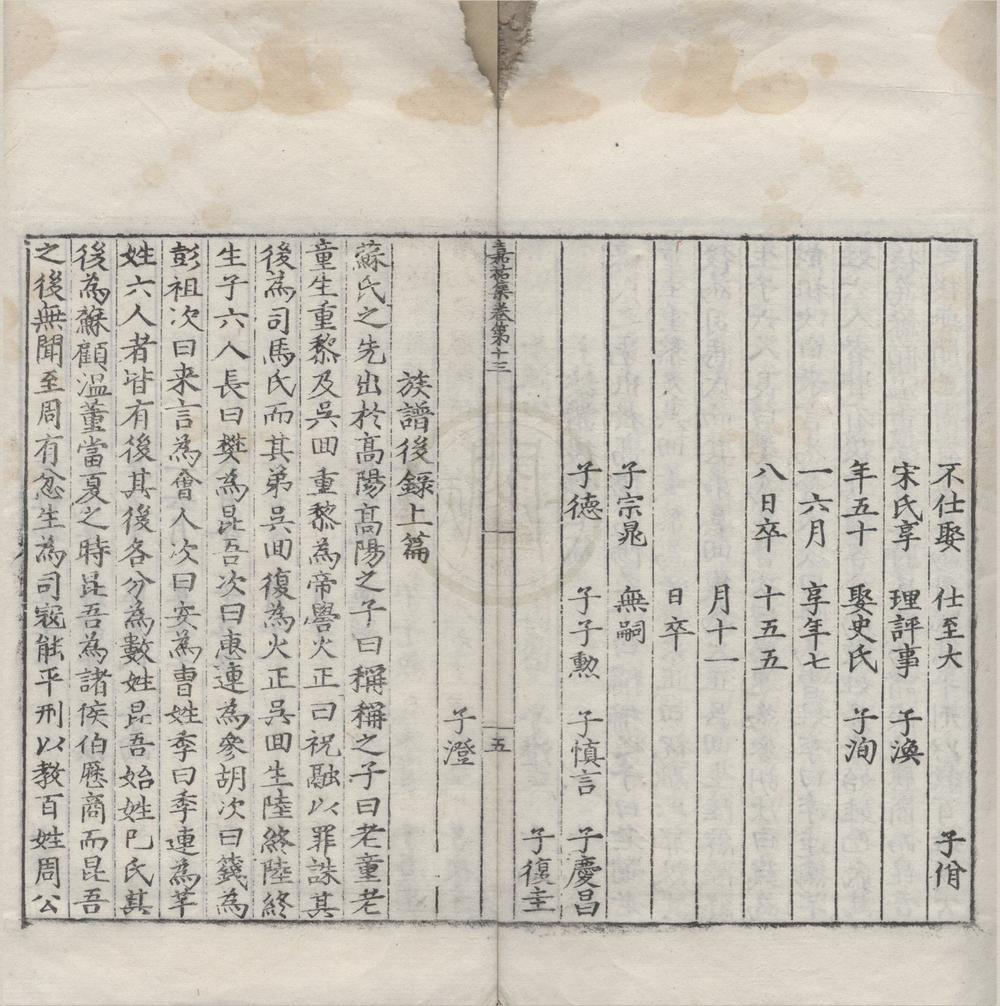 不仕娶　仕至大　子佾
宋氏享　理評事　子渙
年五十　娶史氏　子洵
一六月　享年七
八日卒　十五五
月十一
日卒
子宗晁　無嗣
子德　子子勲　子慎言　子慶昌
子復圭
嘉祐集卷第十三　五
子澄
族譜後録上篇
蘇氏之先出於高陽高陽之子曰稱稱之子曰老童老
童生重黎及吳回重黎為帝嚳火正曰祝融以罪誅其
後為司馬氏而其弟吳回復為火正吳回生陸終陸終
生子六人長曰樊為昆吾次曰惠連為參胡次曰籛為
彭祖次曰来言為鄶人次曰安為曹姓季曰季連為芊
姓六人者皆有後其後各分為數姓昆吾始姓巳氏其
後為蘇顧溫董當夏之時昆吾為諸侯伯歷商而昆吾
之後無聞至周有忿生為司寇能平刑以教百姓周公